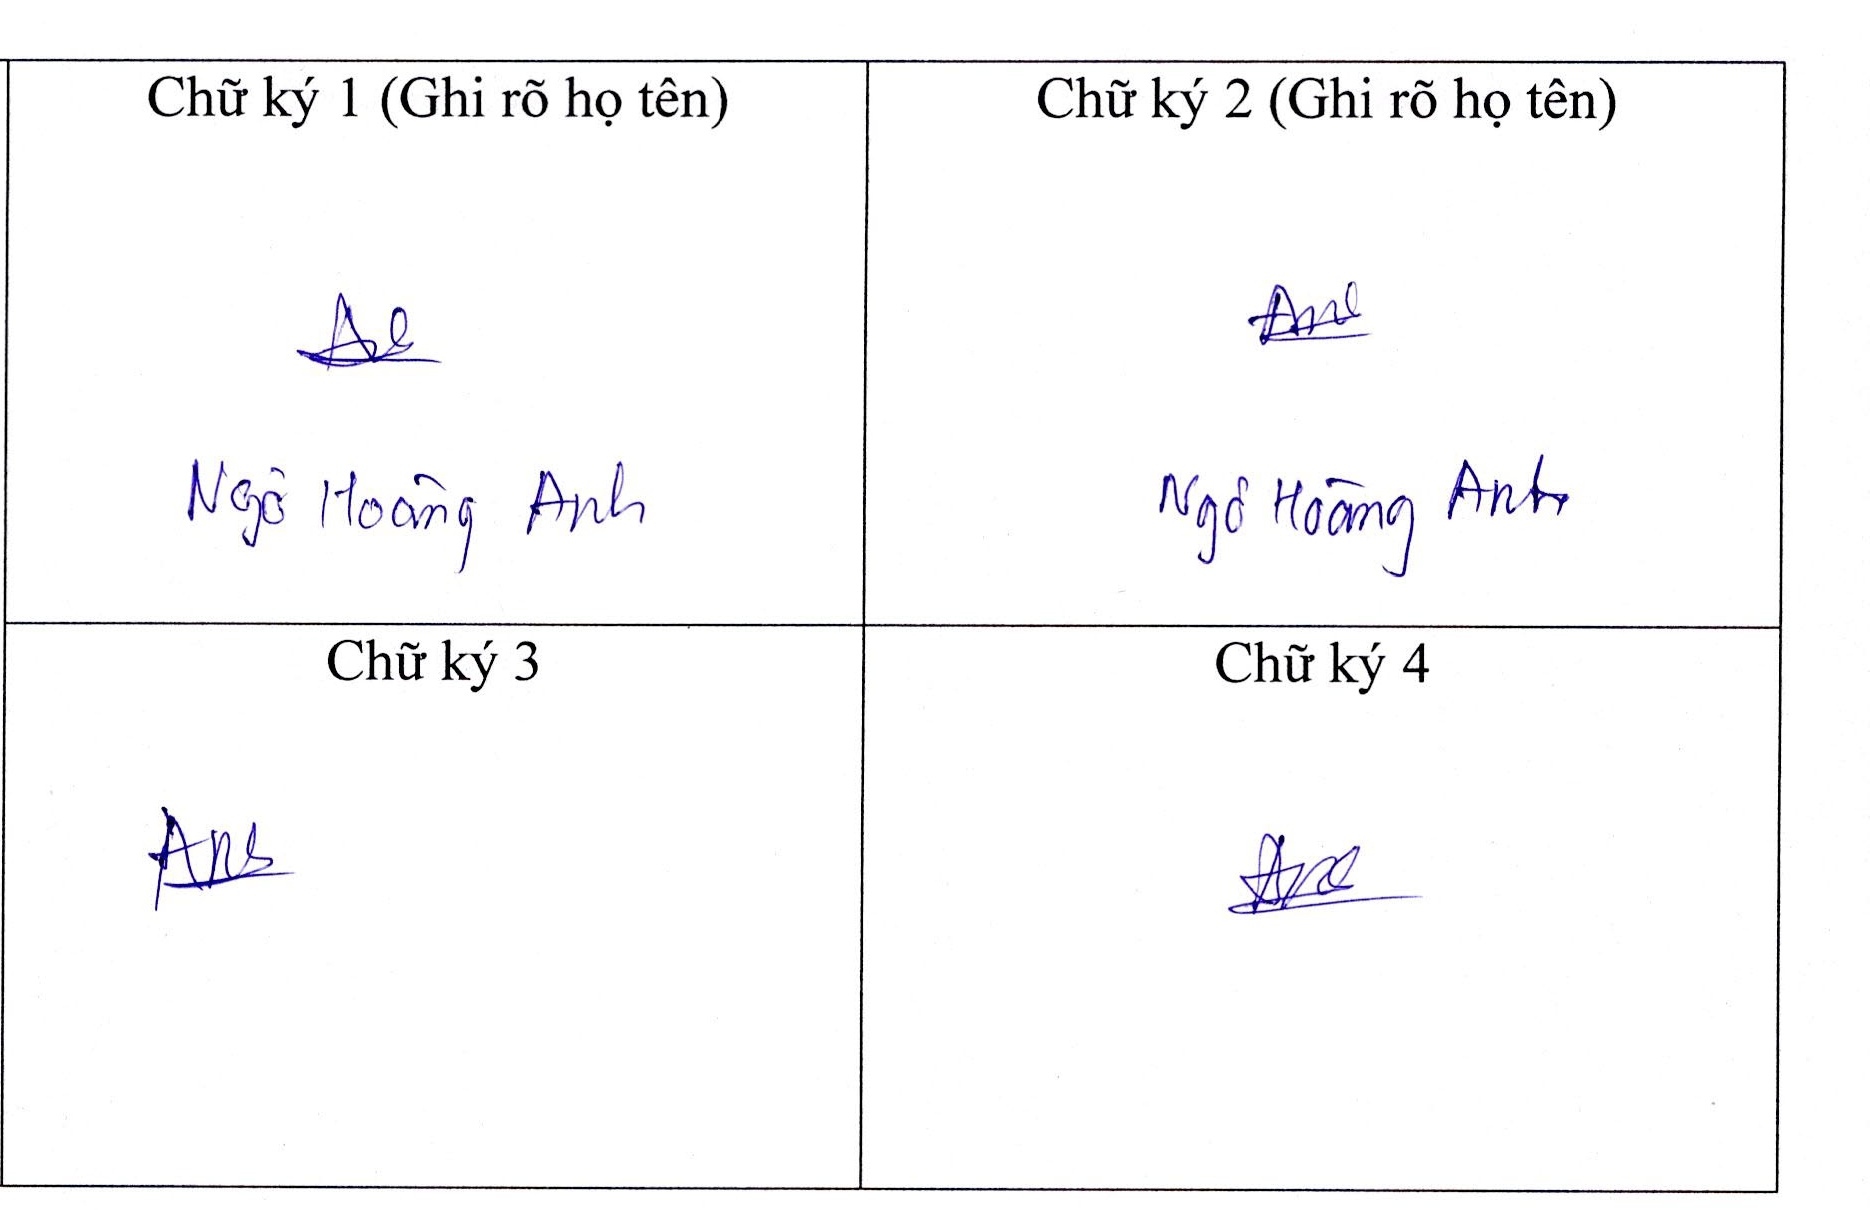 Chữ ký 1 (Ghi rõ họ tên)
Chữ ký 2 (Ghi rõ họ tên)
Ngô Hoàng Anh
Ngô Hoàng Anh
Chữ ký 3
Chữ ký 4